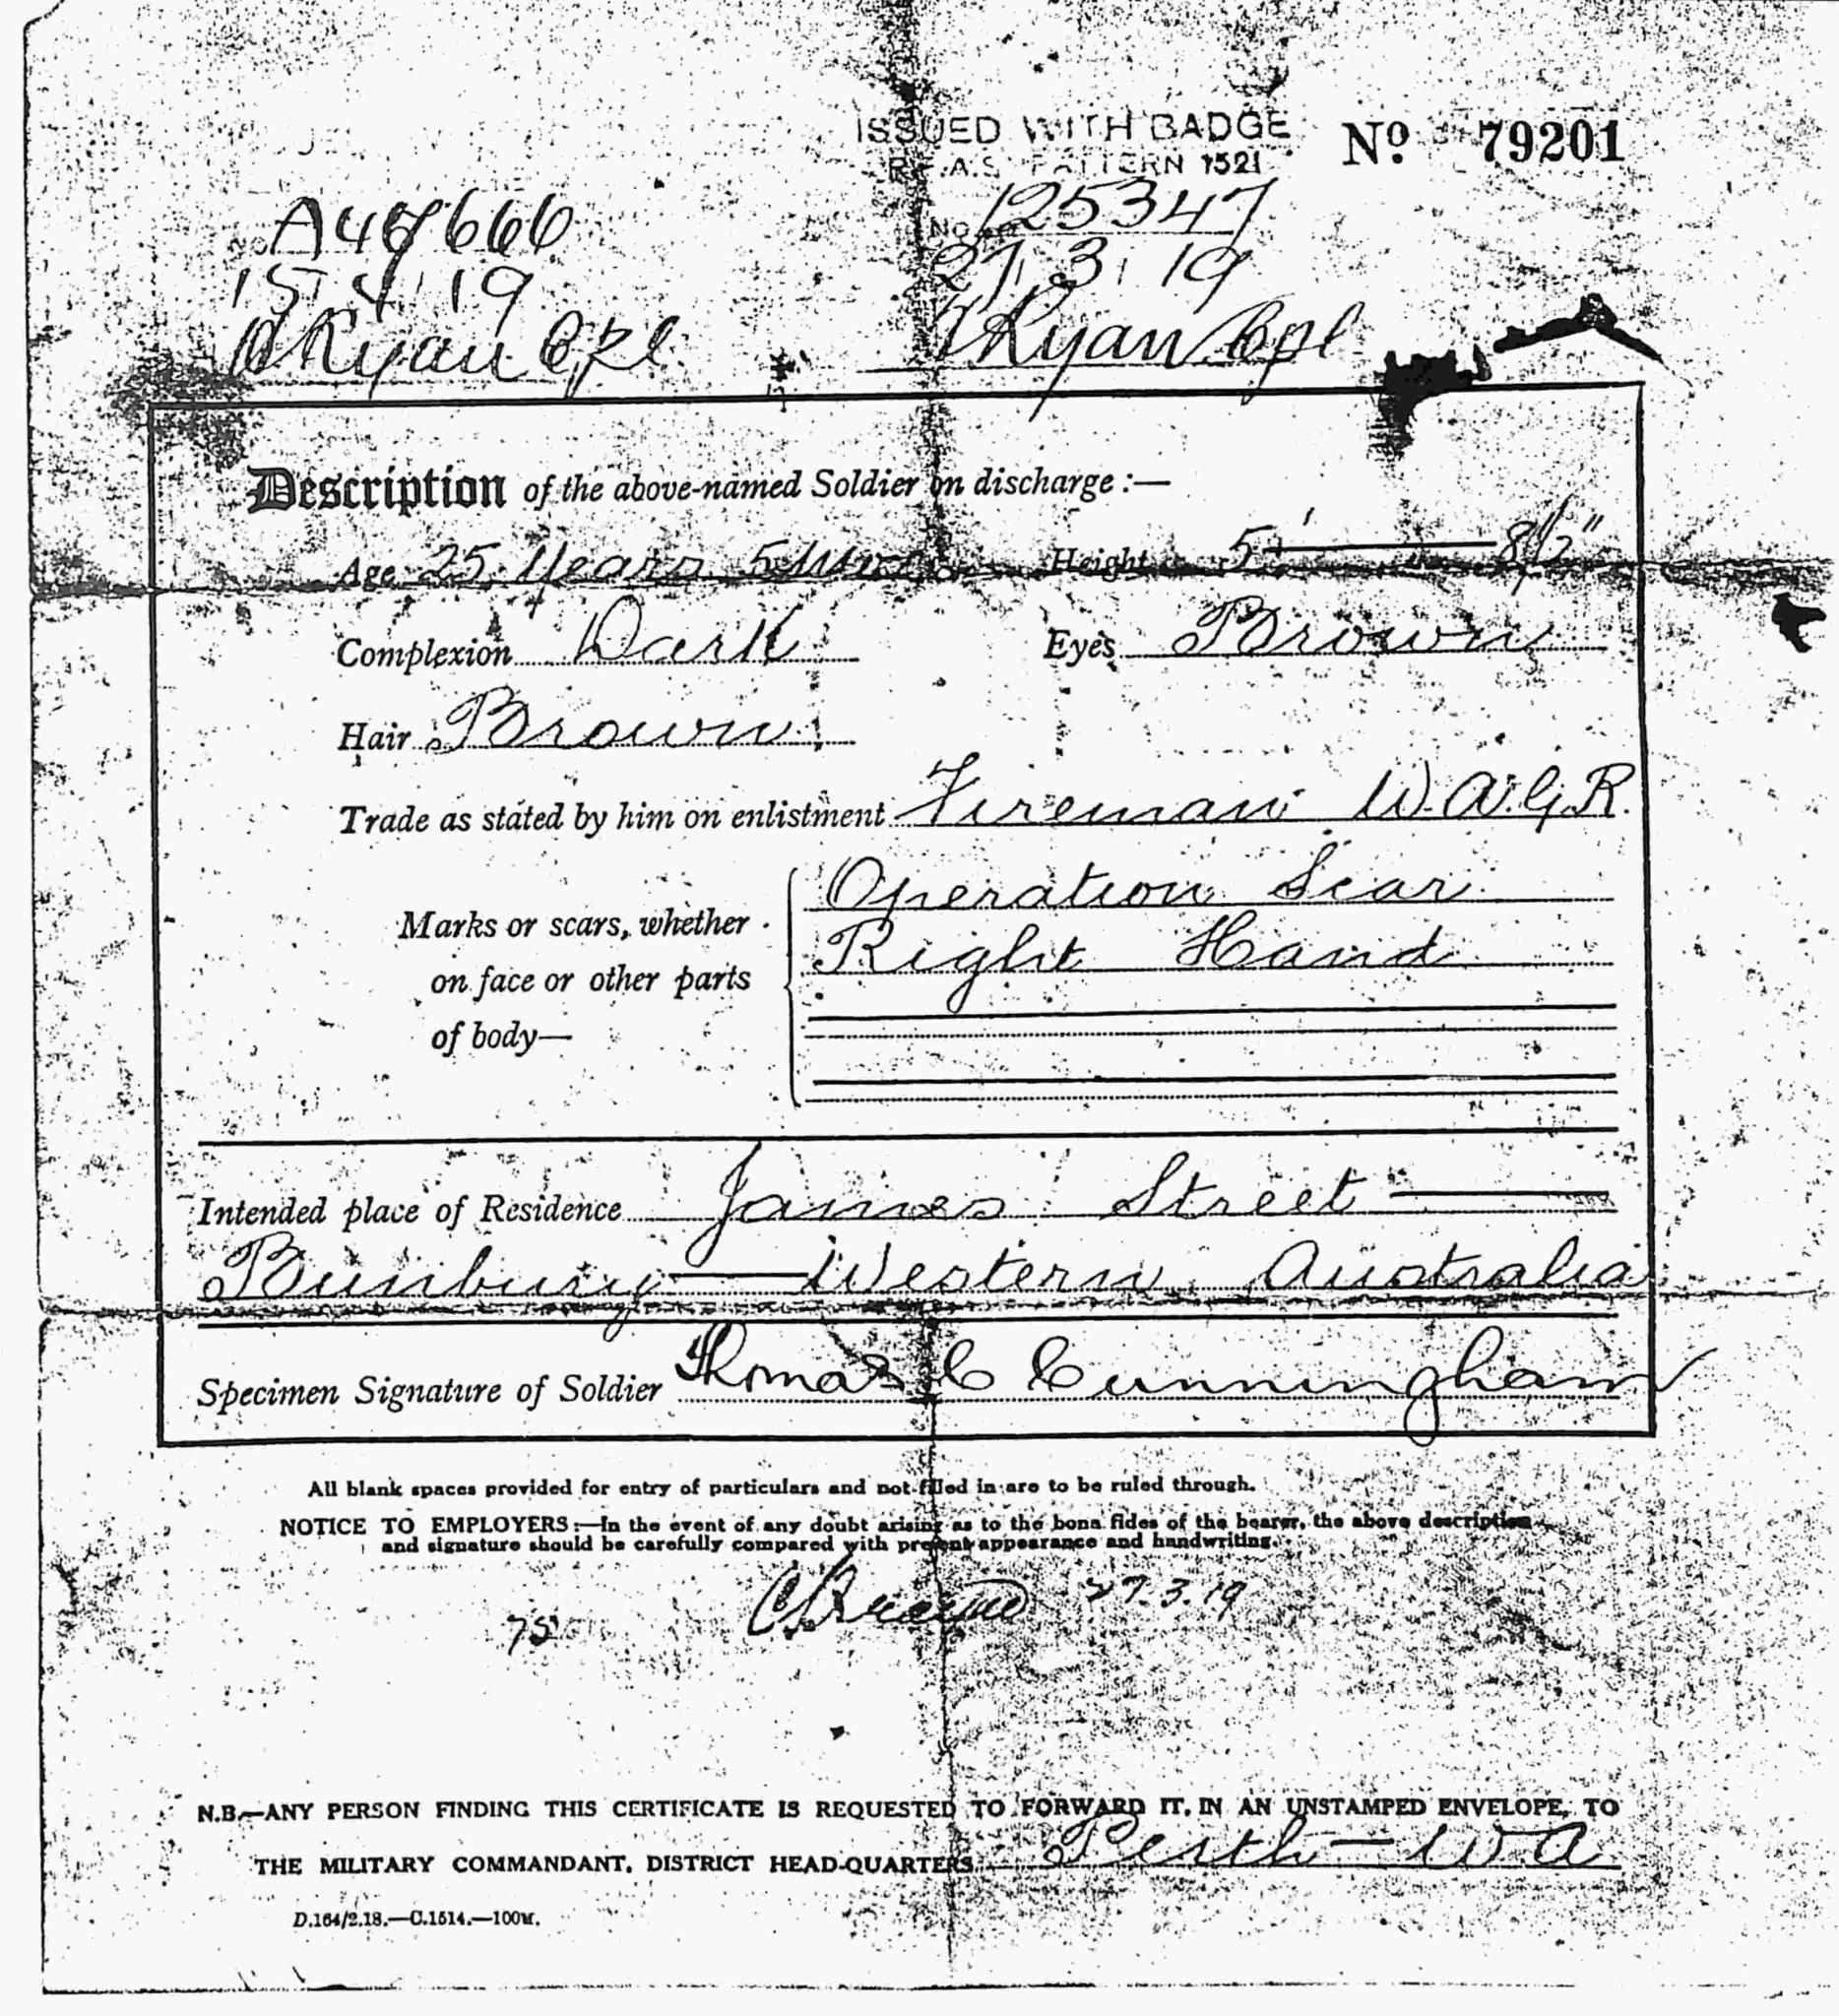 ISSUED WITH BADGE
R.F.A.S. PATTERN 1521
Nº 79201
No. 125347
27. 3. 19
Ryan Cpl
No. A48666
15. 4. 19
Ryan Cpl
Description of the above-named Soldier on discharge :—
Age 25 Years 5 Mos Height 5' — 8½"
Complexion Dark Eyes Brown
Hair Brown
Trade as stated by him on enlistment Fireman W.A.G.R.
Marks or scars, whether on face or other parts of body—
Operation Scar
Right Hand
Intended place of Residence James Street —
Bunbury — Western Australia
Specimen Signature of Soldier Thomas C Cunningham
All blank spaces provided for entry of particulars and not filled in are to be ruled through.
NOTICE TO EMPLOYERS :—In the event of any doubt arising as to the bona fides of the bearer, the above description
and signature should be carefully compared with present appearance and handwriting.
27.3.19
75
N.B.—ANY PERSON FINDING THIS CERTIFICATE IS REQUESTED TO FORWARD IT, IN AN UNSTAMPED ENVELOPE, TO
THE MILITARY COMMANDANT, DISTRICT HEAD-QUARTERS Perth — W.A
D.164/2.18.—C.1514.—100M.